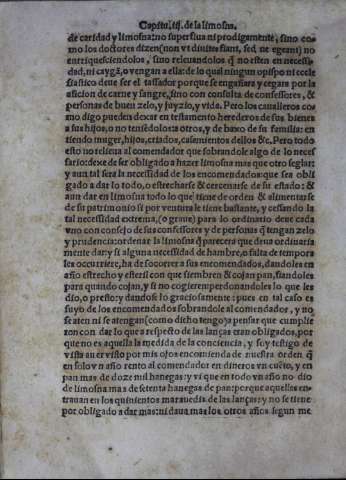 Capitu. iij. de la limosna.
de caridad y limosna: no superflua ni prodigamente, sino co-
mo los doctores dizen (non vt diuites fiant, sed ne egeant) no
enriqueſciendolos, sino releuandolos q̃ no esten en necessi-
dad, ni caygã, o vengan a ella: de lo qual ningun obispo ni eccle
siastico deue ser el tassador porque se engañara y cegara por la
aficion de carne y sangre, sino con consulta de confessores, &
personas de buen zelo, y juyzio, y vida. Pero los caualleros co-
mo digo pueden dexar en testamento herederos de sus bienes
a sus hijos, o no teniẽdolos: a otros, y de baxo de su familia: en
tiendo muger, hijos, criados, casamientos dellos &c. Pero todo
esto no relieua al comendador que sobrandole algo de lo neces
sario: dexe de ser obligado a hazer limosna mas que otro seglar:
y aun tal sera la necessidad de los encomendados: que sea obli
gado a dar lo todo, o estrecharse & cercenarse de su estado: &
aun dar en limosna todo lo que tiene de orden & alimentarse
de su patrimonio si por ventura le tiene bastante, y cessando la
tal necessidad extrema, (o graue) para lo ordinario deue cada
vno con consejo de sus confessores y de personas q̃ tengan zelo
y prudencia: ordenar la limosna q̃ parecera que deua ordinaria
mente dar: y si alguna necessidad de hambre, o falta de tempora
les occurriere, ha de socorrer a sus encomendados, dandoles en
año estrecho y esteril con que siembren & cojan pan, fiandoles
para quando cojan, y si no cogieren perdonandoles lo que les
dio, o presto: y dandose lo graciosamente: pues en tal caso es
suyo de los encomendados sobrandole al comendador, y no
se aten ni se atengan (como dicho tengo) a pensar que cumplie
ron con dar lo que a respecto de las lanças eran obligados, por
que no es aquella la medida de la conciencia, y soy testigo de
vista auer visto por mis ojos encomienda de nuestra orden q̃
en solo vn año rento al comendador en dineros vn cuẽto, y en
pan mas de doze mil hanegas: y vi que en todo vn año no dio
de limosna mas de setenta hanegas de pan: porque aquellas en-
trauan en los quinientos marauedis de las lanças: y no se tiene
por obligado a dar mas: ni daua mas los otros años segun me